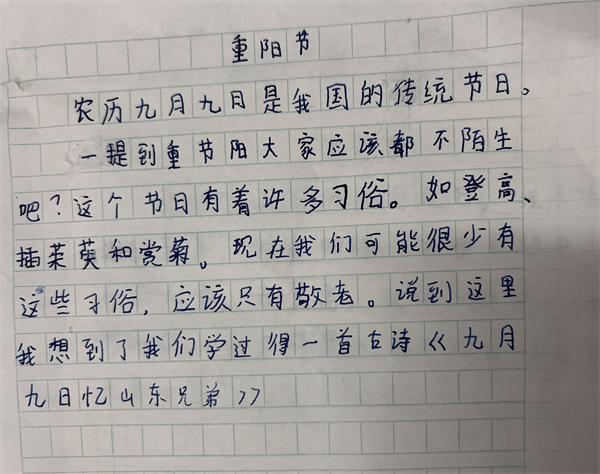 重阳节
农历九月九日是我国的传统节日。
一提到重节阳大家应该都不陌生
吧？这个节日有着许多习俗。如登高、
插茱萸和赏菊。现在我们可能很少有
这些习俗，应该只有敬老。说到这里
我想到了我们学过得一首古诗《九月
九日忆山东兄弟》